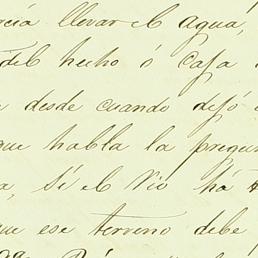 llevar el agua,
del hecho ó Caja
desde cuando dejó
que habla la pregun
a, si el rio há
que ese terreno debe